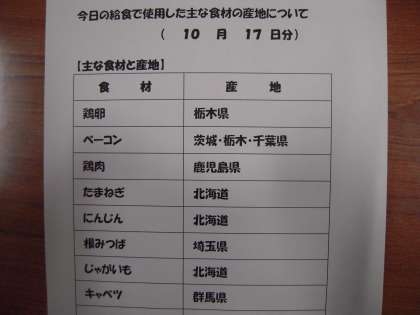 今日の給食で使用した主な食材の産地について
( 10 月 17 日分)
【主な食材と産地】
食 材 産 地
鶏卵 栃木県
ベーコン 茨城・栃木・千葉県
鶏肉 鹿児島県
たまねぎ 北海道
にんじん 北海道
根みつば 埼玉県
じゃがいも 北海道
キャベツ 群馬県